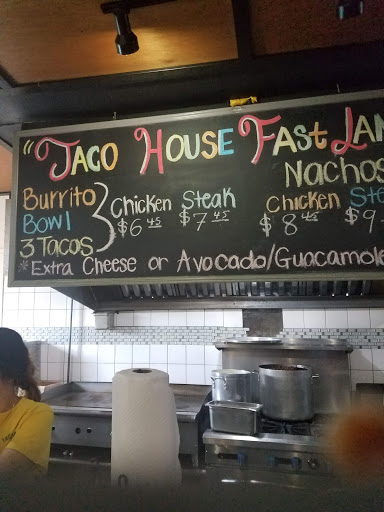 "Taco House Fast Lan
Nachos
Burrito
Bowl
3 Tacos
Chicken Steak
$6.45 $7.45
Chicken Ste
$8.45 $9
*Extra Cheese or Avocado/Guacamole